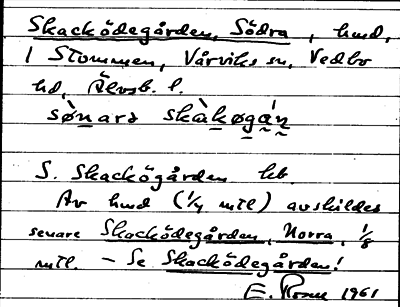 Skacködegården, Södra, hmd,
1 Stommen, Vårviks sn, Vedbo
hd, Älvsb. l.
sø̀nard skàkøgáṇ
S. Skackögården hb.
Av hmd (1/4 mtl) avskildes
senare Skacködegården, Norra, 1/8
mtl. – Se Skacködegården!
1961